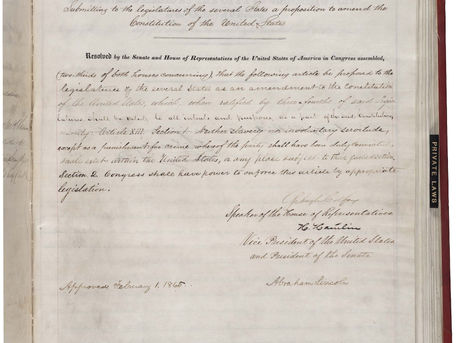 Submitting to the legislatures of the several States a proposition to amend the
Constitution of the United States
Resolved by the Senate and House of Representatives of the United States of America in Congress assembled,
(two thirds of both houses concurring), that the following article be proposed to the
legislatures of the several States as an amendment to the constitution
of the United States, which, when ratified by three fourths of said legis-
latures shall be valid, to all intents and purposes, as a part of the said Constitution,
namely: Article XIII. Section 1. Neither slavery nor involuntary servitude,
except as a punishment for crime whereof the party shall have been duly convicted,
shall exist within the United States, or any place subject to their jurisdiction.
Section 2. Congress shall have power to enforce this article by appropriate
legislation.
Schuyler Colfax
Speaker of the House of Representatives
H. Hamlin
Vice President of the United States
and President of the Senate
Approved February 1, 1865.
Abraham Lincoln
PRIVATE LAWS